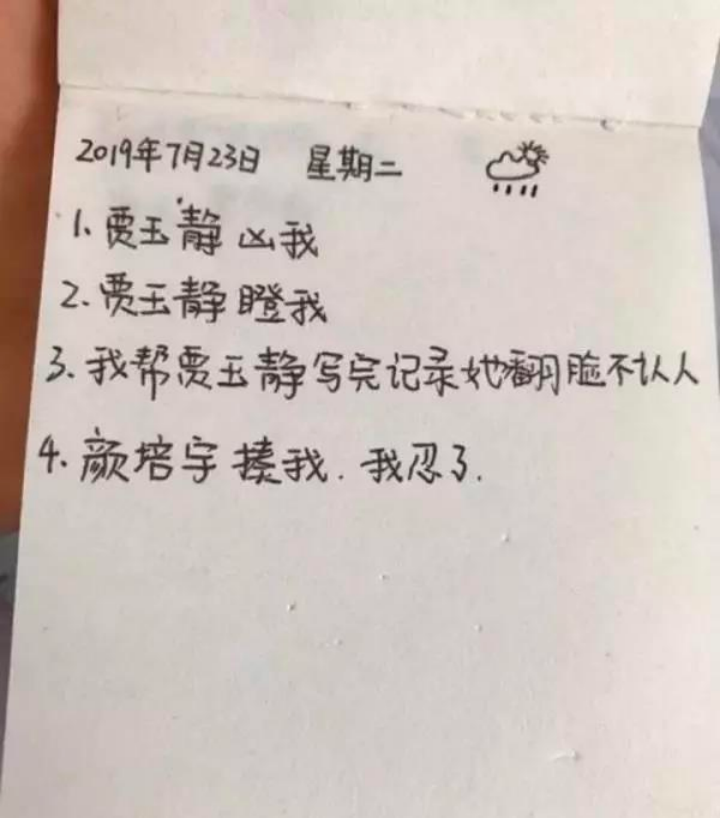 2019年7月23日 星期二
1.贾玉静凶我
2.贾玉静瞪我
3.我帮贾玉静写完记录她翻脸不认人
4.颜培宇揍我.我忍了.